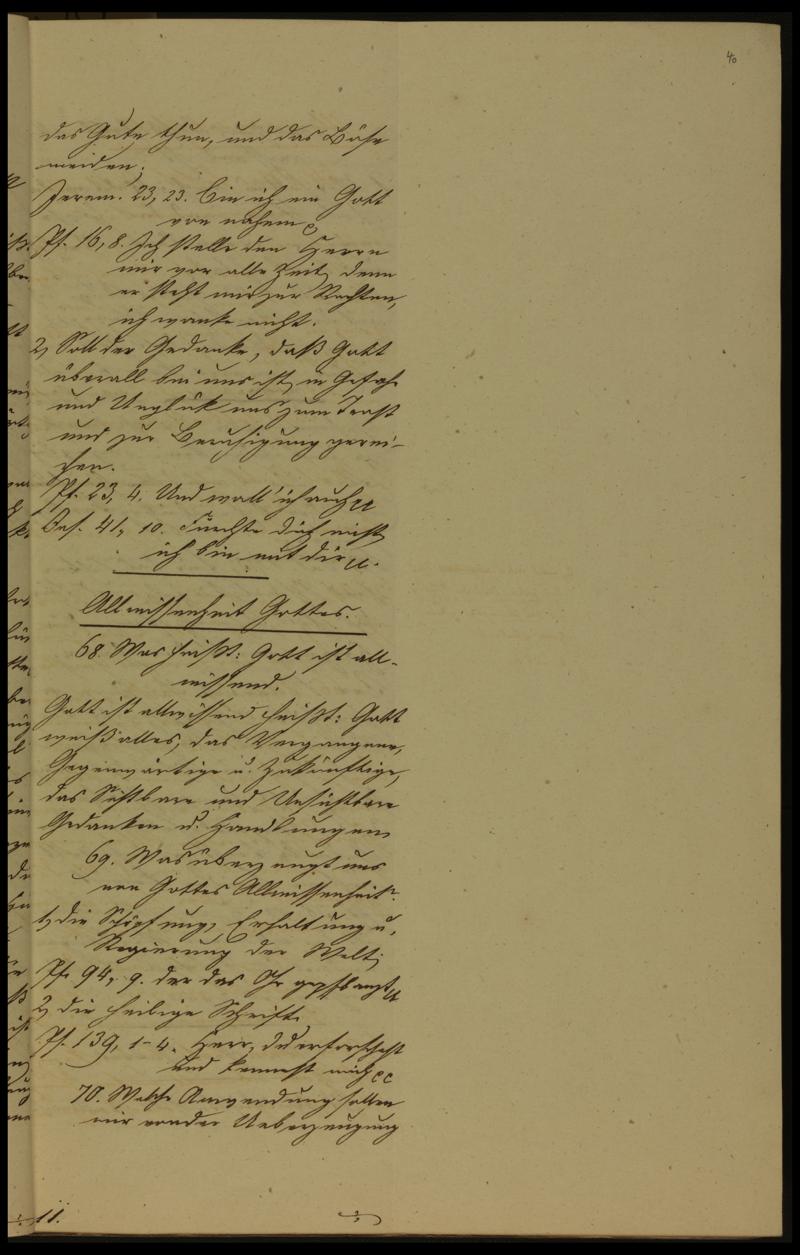 40
das Gute thun, und das Böse
meiden;
Jerem. 23, 23. Bin ich ein Gott
von nahem
Ps. 16, 8. Ich stelle den Herrn
mir vor alle Zeit, denn
er steht mir zur Rechten,
ich wanke nicht.
2, Soll der Gedanke, daß Gott
überall bei uns ist, in Gefahr
und Unglük uns zum Trost
und zur Beruhigung gerei-
chen.
Ps. 23, 4. Und wall' ich auch
Jes. 41, 10. Fürchte dich nicht,
ich bin mit dir
Allwissenheit Gottes.
68. Was heißt: Gott ist all-
wissend.
Gott ist allwissend heißt: Gott
weiß alles, das Vergangene,
Gegenwärtige u. Zukünftige,
das Sichtbare und Unsichtbare
Gedanken u. Handlungen
69. Was überzeugt uns
von Gottes Allwissenheit?
1, die Schöpfung, Erhaltung u.
Regierung der Welt;
Ps. 94, 9. der das Ohr gepflanzt
2, die heilige Schrift.
Ps. 139, 1-4. Herr, du erforschest
und kennest mich
70. Welche Anwendung sollen
wir von der Ueberzeugung
11.